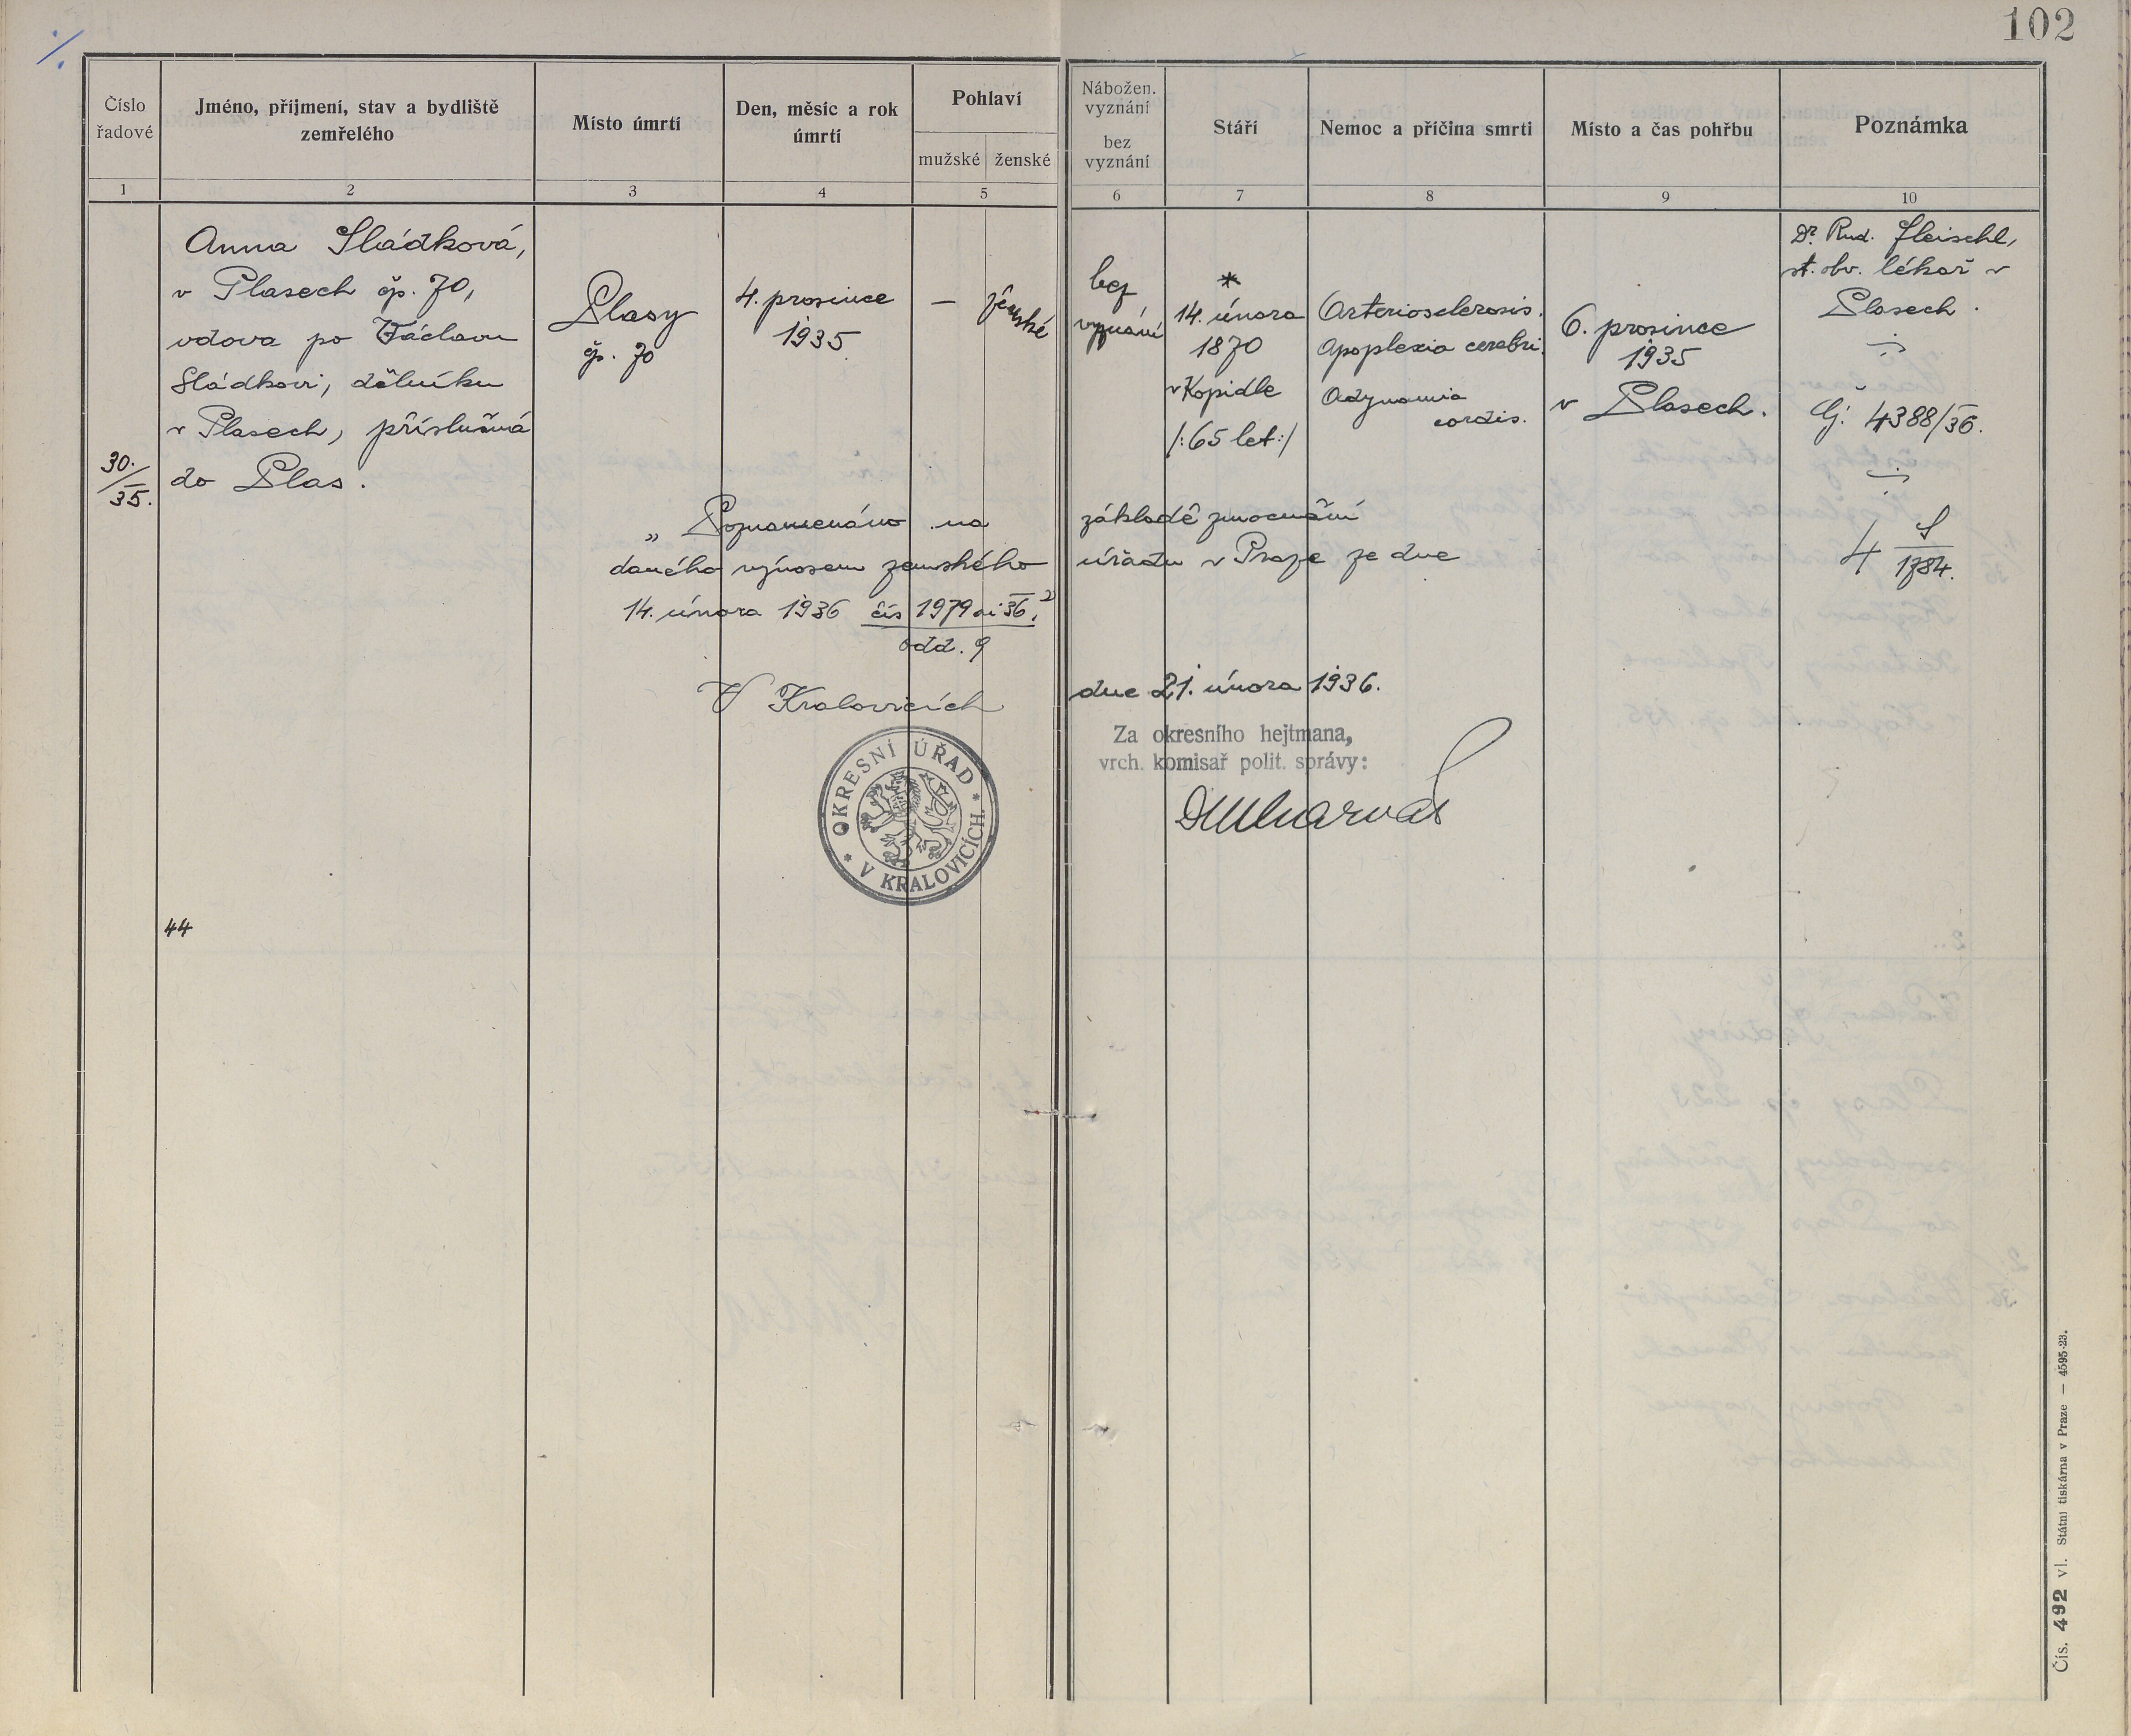 102
Číslo
řadové
Jméno, příjmení, stav a bydliště
zemřelého
Místo úmrtí
Den, měsíc a rok
úmrtí
Pohlaví
mužské
ženské
Nábožen.
vyznání
bez
vyznání
Stáří
Nemoc a příčina smrti
Místo a čas pohřbu
Poznámka
1
2
3
4
5
6
7
8
9
10
30./35.
Anna Sládková,
v Plasech čp. 70,
vdova po Václavu
Sládkovi, dělníku
v Plasech, příslušná
do Plas.
Plasy
čp. 70
4. prosince
1935
—
ženské
bez
vyznání
*
14. února
1870
v Kopidle
/:65 let:/
Arteriosclerosis.
Apoplexia cerebri.
Adynamia
cordis.
6. prosince
1935
v Plasech.
Dr. Rud. Fleischl,
st. obv. lékař v
Plasech.
Čj. 4388/36.
4 S/1784.
„Poznamenáno na základě zmocnění
daného výnosem zemského úřadu v Praze ze dne
14. února 1936 čís 1979 ai 36,
odd. 9
V Kralovicích dne 21. února 1936.
Za okresního hejtmana,
vrch. komisař polit. správy:
OKRESNÍ ÚŘAD
* V KRALOVICÍCH. *
44
Čís. 492 vl. Státní tiskárna v Praze — 4595-23.